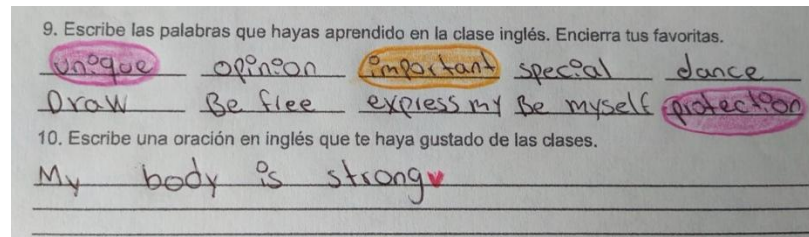 9. Escribe las palabras que hayas aprendido en la clase inglés. Encierra tus favoritas.
unique opinion important special dance
Draw Be free express my Be myself protection
10. Escribe una oración en inglés que te haya gustado de las clases.
My body is strong